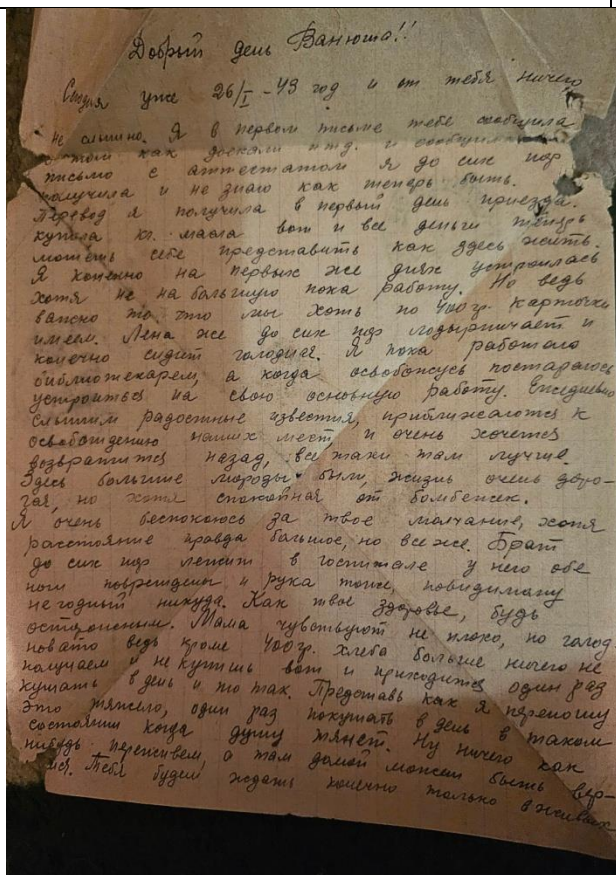 Добрый день Ванюша!!
Сегодня уже 26/I - 43 год и от тебя ничего
не слышно. Я в первом письме тебе сообщила
о том как доехали и т.д. и сообщила
письмо с аттестатом я до сих пор
получила и не знаю как теперь быть.
Перевод я получила в первый день приезда.
купила кг. масла вот и все деньги теперь
можешь себе представить как здесь жить.
Я конечно на первых же днях устроилась
хотя не на большую пока работу. Но ведь
важно то что мы хоть по 400 гр. карточки
имеем. Лена же до сих пор лодырничает и
конечно сидит голодная. Я пока работаю
библиотекарем, а когда освобожусь постараюсь
устроиться на свою основную работу. Ежедневно
слышим радостные известия, приближаются к
освобождению наших мест и очень хочется
возвратится назад, все таки там лучше.
Здесь большие морозы были, жизнь очень доро-
гая, но хотя спокойная от бомбежек.
Я очень беспокоюсь за твое молчание, хотя
расстояние правда большое, но все же. Брат
до сих пор лежит в госпитале у него обе
ноги повреждены и рука тоже, повидимому
негодный никуда. Как твое здоровье, будь
осторожным. Мама чувствует не плохо, но голод
новато ведь кроме 400 гр. хлеба больше ничего не
получаем и не купишь вот и приходится один раз
кушать в день и то так. Представь как я переношу
это тяжело, один раз покушать в день в таком
состоянии когда душу тянет. Ну ничего как
нибудь переживем, а там домой может быть вер-
мся. Тебя будем ждать конечно только в живых